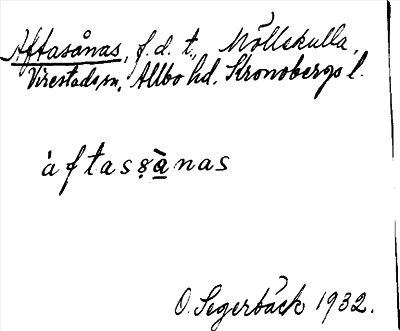 Aftasånas, f.d. t., Möllekulla,
Virestads sn, Allbo hd, Kronobergs l.
àftasṣànas
O. Segerbäck 1932.